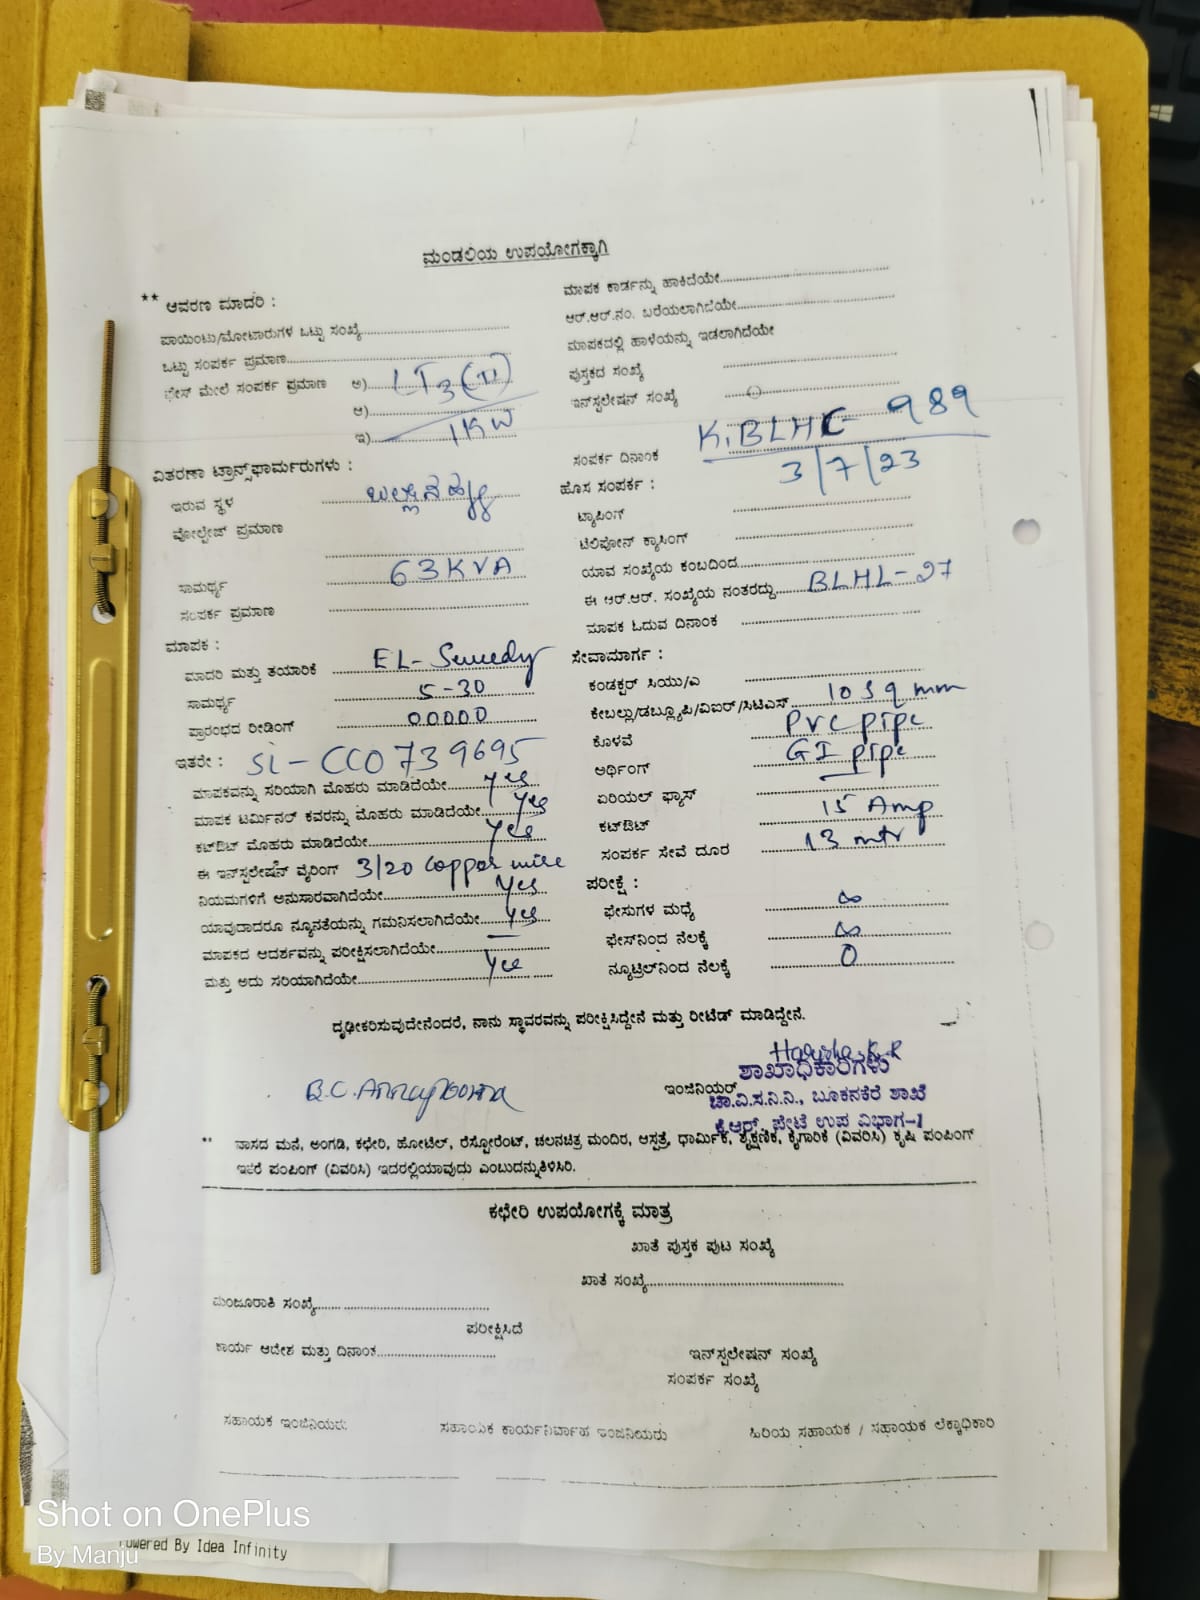 ಮಂಡಲಿಯ ಉಪಯೋಗಕ್ಕಾಗಿ
** ಆವರಣ ಮಾದರಿ :
ಪಾಯಿಂಟು/ಮೋಟಾರುಗಳ ಒಟ್ಟು ಸಂಖ್ಯೆ
ಒಟ್ಟು ಸಂಪರ್ಕ ಪ್ರಮಾಣ
ಫೇಸ್ ಮೇಲೆ ಸಂಪರ್ಕ ಪ್ರಮಾಣ ಅ) LT3(II)
ಆ)
ಇ) 1KW
ವಿತರಣಾ ಟ್ರಾನ್ಸ್‌ಫಾರ್ಮರುಗಳು :
ಇರುವ ಸ್ಥಳ
ವೋಲ್ಟೇಜ್ ಪ್ರಮಾಣ
ಸಾಮರ್ಥ್ಯ 63KVA
ಸಂಪರ್ಕ ಪ್ರಮಾಣ
ಮಾಪಕ :
ಮಾದರಿ ಮತ್ತು ತಯಾರಿಕೆ EL-
ಸಾಮರ್ಥ್ಯ 5-30
ಪ್ರಾರಂಭದ ರೀಡಿಂಗ್ 00000
ಇತರೇ : Sl-CC0739695
ಮಾಪಕವನ್ನು ಸರಿಯಾಗಿ ಮೊಹರು ಮಾಡಿದೆಯೇ yes
ಮಾಪಕ ಟರ್ಮಿನಲ್ ಕವರನ್ನು ಮೊಹರು ಮಾಡಿದೆಯೇ yes
ಕಟ್‌ಔಟ್ ಮೊಹರು ಮಾಡಿದೆಯೇ yes
ಈ ಇನ್‌ಸ್ಟಲೇಷನ್ ವೈರಿಂಗ್ 3/20 copper wire
ನಿಯಮಗಳಿಗೆ ಅನುಸಾರವಾಗಿದೆಯೇ yes
ಯಾವುದಾದರೂ ನ್ಯೂನತೆಯನ್ನು ಗಮನಿಸಲಾಗಿದೆಯೇ yes
ಮಾಪಕದ ಆದರ್ಶವನ್ನು ಪರೀಕ್ಷಿಸಲಾಗಿದೆಯೇ
ಮತ್ತು ಅದು ಸರಿಯಾಗಿದೆಯೇ yes
ಮಾಪಕ ಕಾರ್ಡನ್ನು ಹಾಕಿದೆಯೇ
ಆರ್.ಆರ್.ನಂ. ಬರೆಯಲಾಗಿದೆಯೇ
ಮಾಪಕದಲ್ಲಿ ಹಾಳೆಯನ್ನು ಇಡಲಾಗಿದೆಯೇ
ಪುಸ್ತಕದ ಸಂಖ್ಯೆ
ಇನ್‌ಸ್ಟಲೇಷನ್ ಸಂಖ್ಯೆ
K.BLHL-989
ಸಂಪರ್ಕ ದಿನಾಂಕ 3/7/23
ಹೊಸ ಸಂಪರ್ಕ :
ಟ್ಯಾಪಿಂಗ್
ಟೆಲಿಫೋನ್ ಕ್ರಾಸಿಂಗ್
ಯಾವ ಸಂಖ್ಯೆಯ ಕಂಬದಿಂದ
ಈ ಆರ್.ಆರ್. ಸಂಖ್ಯೆಯ ನಂತರದ್ದು BLHL-27
ಮಾಪಕ ಓದುವ ದಿನಾಂಕ
ಸೇವಾಮಾರ್ಗ :
ಕಂಡಕ್ಟರ್ ಸಿಯು/ಎ
ಕೇಬಲ್ಲು/ಡಬ್ಲ್ಯೂಪಿ/ವಿಐಆರ್/ಸಿಟಿಎಸ್ 10 sq mm
ಕೊಳವೆ PVC pipe
ಅರ್ಥಿಂಗ್ GI pipe
ಏರಿಯಲ್ ಫ್ಯೂಸ್
ಕಟ್‌ಔಟ್ 15 Amp
ಸಂಪರ್ಕ ಸೇವೆ ದೂರ 13 mtr
ಪರೀಕ್ಷೆ :
ಫೇಸುಗಳ ಮಧ್ಯೆ ∞
ಫೇಸ್‌ನಿಂದ ನೆಲಕ್ಕೆ ∞
ನ್ಯೂಟ್ರಲ್‌ನಿಂದ ನೆಲಕ್ಕೆ 0
ದೃಢೀಕರಿಸುವುದೇನೆಂದರೆ, ನಾನು ಸ್ಥಾವರವನ್ನು ಪರೀಕ್ಷಿಸಿದ್ದೇನೆ ಮತ್ತು ರೀಟೆಡ್ ಮಾಡಿದ್ದೇನೆ.
ಶಾಖಾಧಿಕಾರಿಗಳು
ಇಂಜಿನಿಯರ್
ಚಾ.ವಿ.ಸ.ನಿ.ನಿ., ಬೂಕನಕೆರೆ ಶಾಖೆ
ಕೆ.ಆರ್. ಪೇಟೆ ಉಪ ವಿಭಾಗ-1
** ವಾಸದ ಮನೆ, ಅಂಗಡಿ, ಕಛೇರಿ, ಹೋಟೆಲ್, ರೆಸ್ಟೋರೆಂಟ್, ಚಲನಚಿತ್ರ ಮಂದಿರ, ಆಸ್ಪತ್ರೆ, ಧಾರ್ಮಿಕ, ಶೈಕ್ಷಣಿಕ, ಕೈಗಾರಿಕೆ (ವಿವರಿಸಿ) ಕೃಷಿ ಪಂಪಿಂಗ್
ಇತರೆ ಪಂಪಿಂಗ್ (ವಿವರಿಸಿ) ಇದರಲ್ಲಿಯಾವುದು ಎಂಬುದನ್ನುತಿಳಿಸಿರಿ.
ಕಛೇರಿ ಉಪಯೋಗಕ್ಕೆ ಮಾತ್ರ
ಖಾತೆ ಪುಸ್ತಕ ಪುಟ ಸಂಖ್ಯೆ
ಖಾತೆ ಸಂಖ್ಯೆ
ಮಂಜೂರಾತಿ ಸಂಖ್ಯೆ
ಪರೀಕ್ಷಿಸಿದೆ
ಕಾರ್ಯ ಆದೇಶ ಮತ್ತು ದಿನಾಂಕ
ಇನ್‌ಸ್ಟಲೇಷನ್ ಸಂಖ್ಯೆ
ಸಂಪರ್ಕ ಸಂಖ್ಯೆ
ಸಹಾಯಕ ಇಂಜಿನಿಯರು
ಸಹಾಯಕ ಕಾರ್ಯನಿರ್ವಾಹ ಇಂಜನಿಯರು
ಹಿರಿಯ ಸಹಾಯಕ / ಸಹಾಯಕ ಲೆಕ್ಕಾಧಿಕಾರಿ
Shot on OnePlus
By Manju
Powered By Idea Infinity